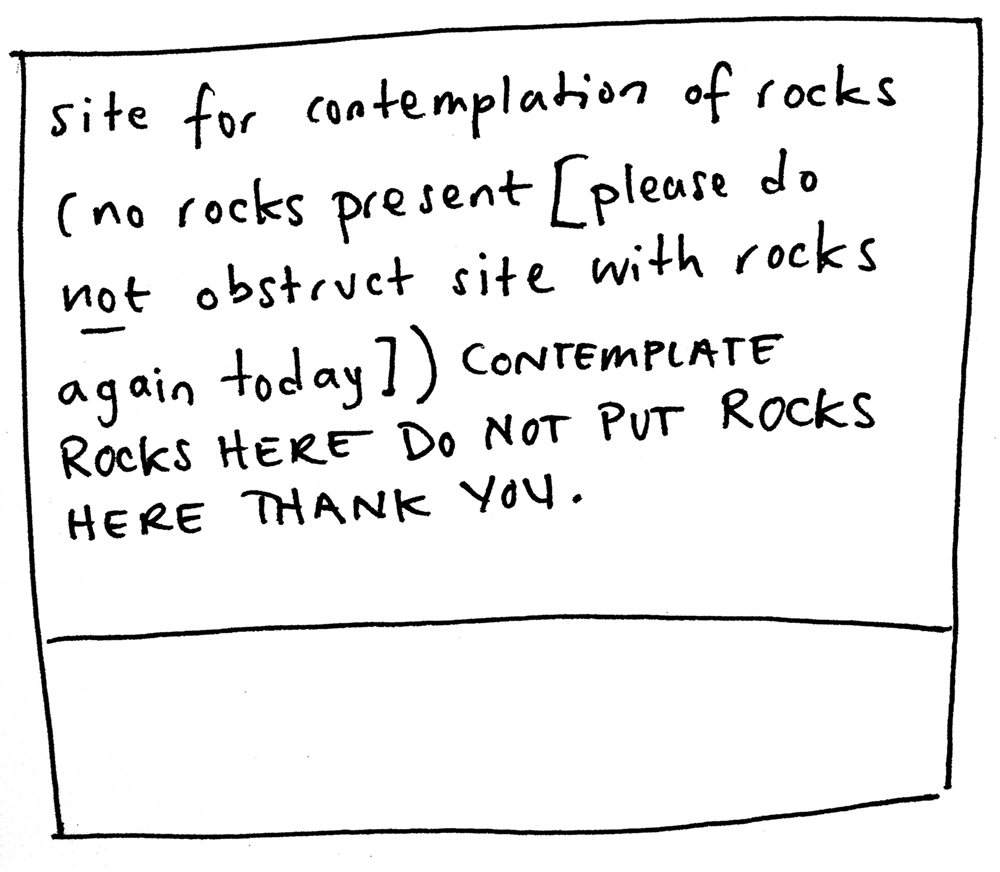 site for contemplation of rocks
(no rocks present [please do
not obstruct site with rocks
again today]) CONTEMPLATE
ROCKS HERE DO NOT PUT ROCKS
HERE THANK YOU.